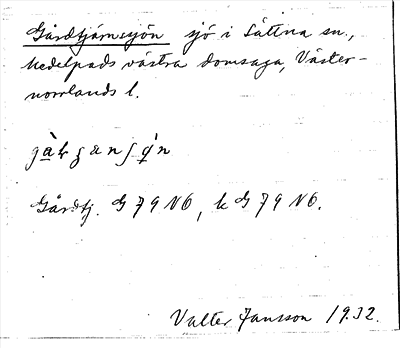 Gårdtjärnsjön sjö i Sättna sn.,
Medelpads västra domsaga, Väster-
norrlands l.
Gårdtj. G 79 NO, k G 79 NO.
Valter Jansson 1932.